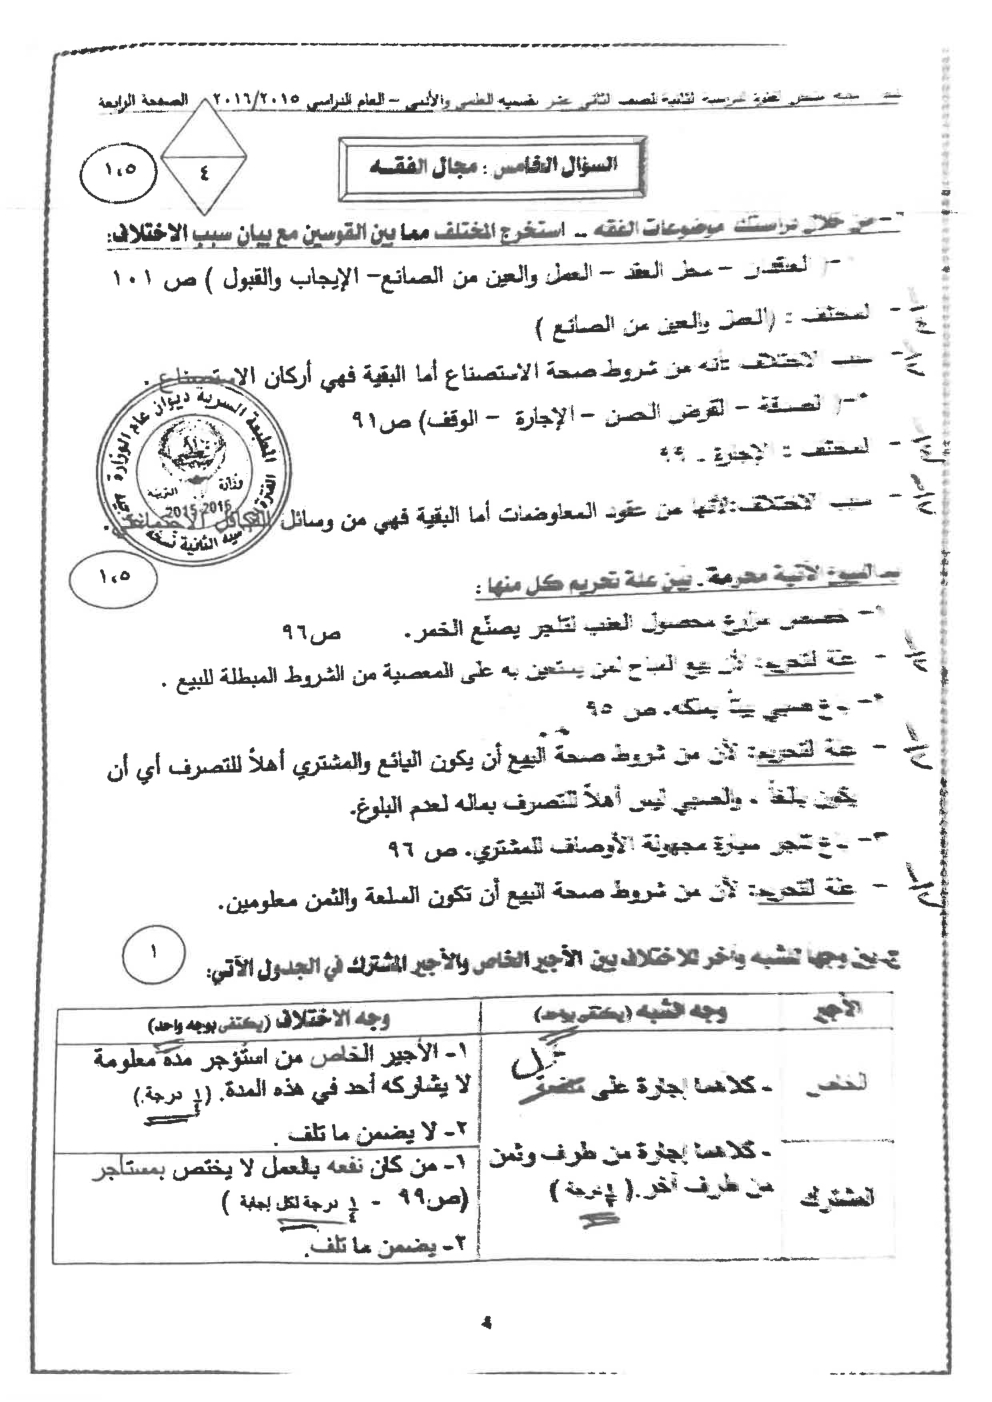 للصف الثاني عشر بقسميه العلمي والأدبي – العام الدراسي ٢٠١٦/٢٠١٥ الصفحة الرابعة
السؤال الخامس : مجال الفقه
٤
١,٥
من خلال دراستك موضوعات الفقه – استخرج المختلف مما بين القوسين مع بيان سبب الاختلاف:
العاقدان – محل العقد – العمل والعين من الصانع – الإيجاب والقبول ) ص ١٠١
المختلف : (العمل والعين من الصانع )
سبب الاختلاف لأنه من شروط صحة الاستصناع أما البقية فهي أركان الاستصناع .
الصدقة – القرض الحسن – الإجارة – الوقف) ص٩١
المختلف : الإجارة . ٩٩
سبب الاختلاف:لأنها من عقود المعاوضات أما البقية فهي من وسائل التكافل الاجتماعي .
المطبعة السرية ديوان عام الوزارة
وزارة التربية
2015-2016
الثانية نسخة
١,٥
البيوع الآتية محرمة . بين علة تحريم كل منها :
خصص مزارع محصول العنب لتاجر يصنّع الخمر. ص٩٦
- علة التحريم: لأن بيع المباح لمن يستعين به على المعصية من الشروط المبطلة للبيع .
باع صبي بيتاً يملكه. ص ٩٥
- علة التحريم: لأن من شروط صحة البيع أن يكون البائع والمشتري أهلاً للتصرف أي أن
يكون بالغاً ، والصبي ليس أهلاً للتصرف بماله لعدم البلوغ.
٣- باع تاجر سيارة مجهولة الأوصاف للمشتري. ص ٩٦
- علة التحريم: لأن من شروط صحة البيع أن تكون السلعة والثمن معلومين.
١
بين وجهاً للشبه وآخر للاختلاف بين الأجير الخاص والأجير المشترك في الجدول الآتي:
الأجير
وجه الشبه (يكتفى بواحد)
وجه الاختلاف (يكتفى بوجه واحد)
الخاص
- كلاهما إجارة على منفعة
١- الأجير الخاص من استؤجر مدة معلومة
لا يشاركه أحد في هذه المدة. (١/٤ درجة.)
٢- لا يضمن ما تلف .
المشترك
- كلاهما إجارة من طرف وثمن
من طرف آخر. ( ١/٢ درجة )
١- من كان نفعه بالعمل لا يختص بمستأجر
(ص٩٩ - ١/٤ درجة لكل إجابة )
٢- يضمن ما تلف.
٤